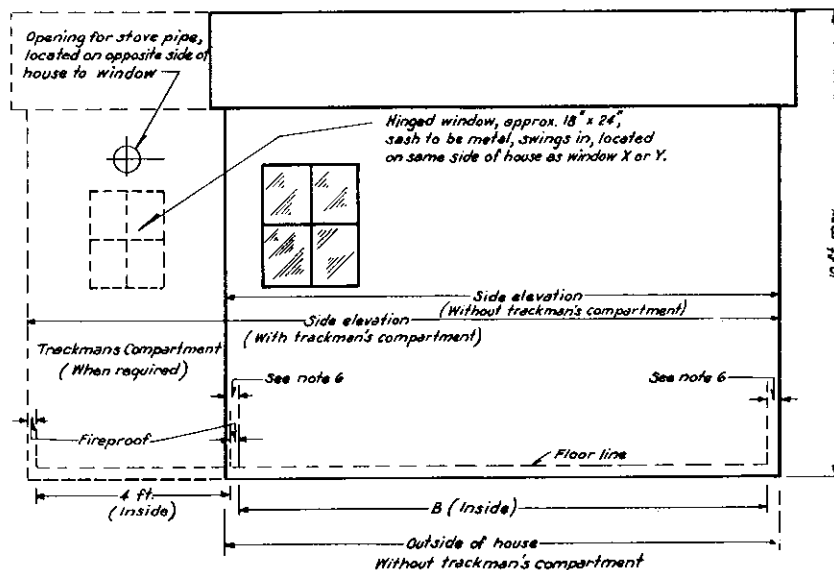 Opening for stove pipe,
located on opposite side of
house to window
Hinged window, approx. 18" x 24",
sash to be metal, swings in, located
on same side of house as window X or Y.
Side elevation
(Without trackman's compartment)
Side elevation
(With trackman's compartment)
Trackmans Compartment
(When required)
See note 6
See note 6
Fireproof
Floor line
4 ft.
(Inside)
B (Inside)
Outside of house
Without trackman's compartment